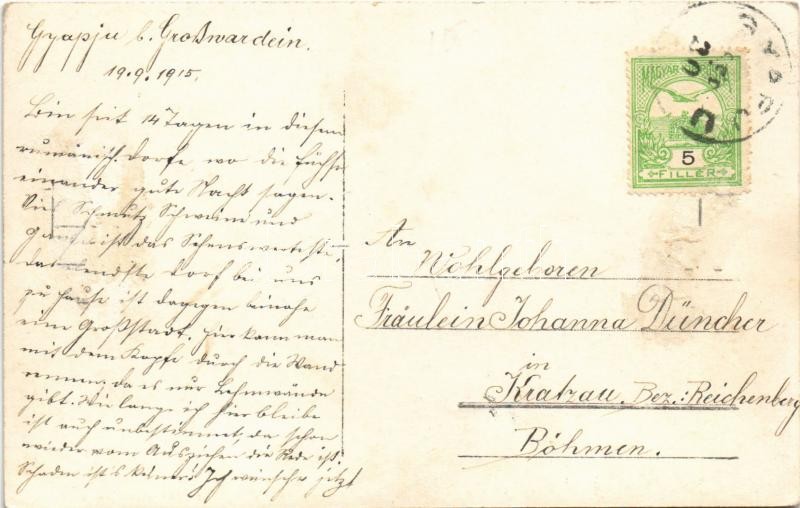 Gyapju b. Großwardein.
19.9.1915.
Bin seit 14 Tagen in diesem
rumänisch. Dorfe wo die Füchse
einander gute Nacht sagen.
Viel Schmutz, Schweine und
Gänse ist das Sehenswerteste,
das elendste Dorf bei uns
zu Hause ist dagegen beinahe
eine Großstadt. Hier kann man
mit dem Kopfe durch die Wand
rennen, da es nur Lehmwände
gibt. Wie lange ich hier bleibe
ist auch unbestimmt, da schon
wieder vom Ausziehen die Rede ist.
Schaden ist's keiner! Ich wünschte jetzt
MAGYAR
5
FILLÉR
An
Wohlgeboren
Fräulein Johanna Düncher
in
Kratzau, Bez.: Reichenberg
Böhmen.